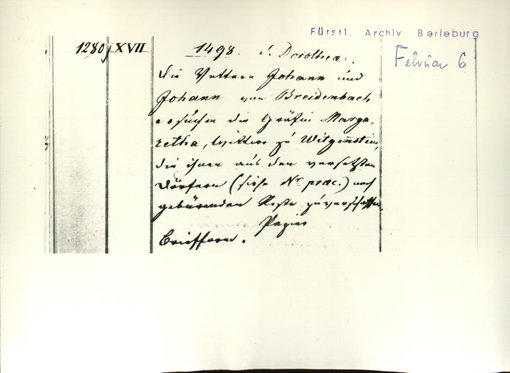 Fürstl. Archiv Berleburg
Februar 6
1280 XVII 1498. s. Dorothea.
Die Vettern Johann und
Johann von Breidenbach
ersuchen die Gräfin Marga-
retha, Wittwe zu Witgenstein,
die ihnen aus den versetzten
Dörfern (siehe Nr. praec.) noch
gebürenden Reste zu verschaffen.
Papier
Briefform.